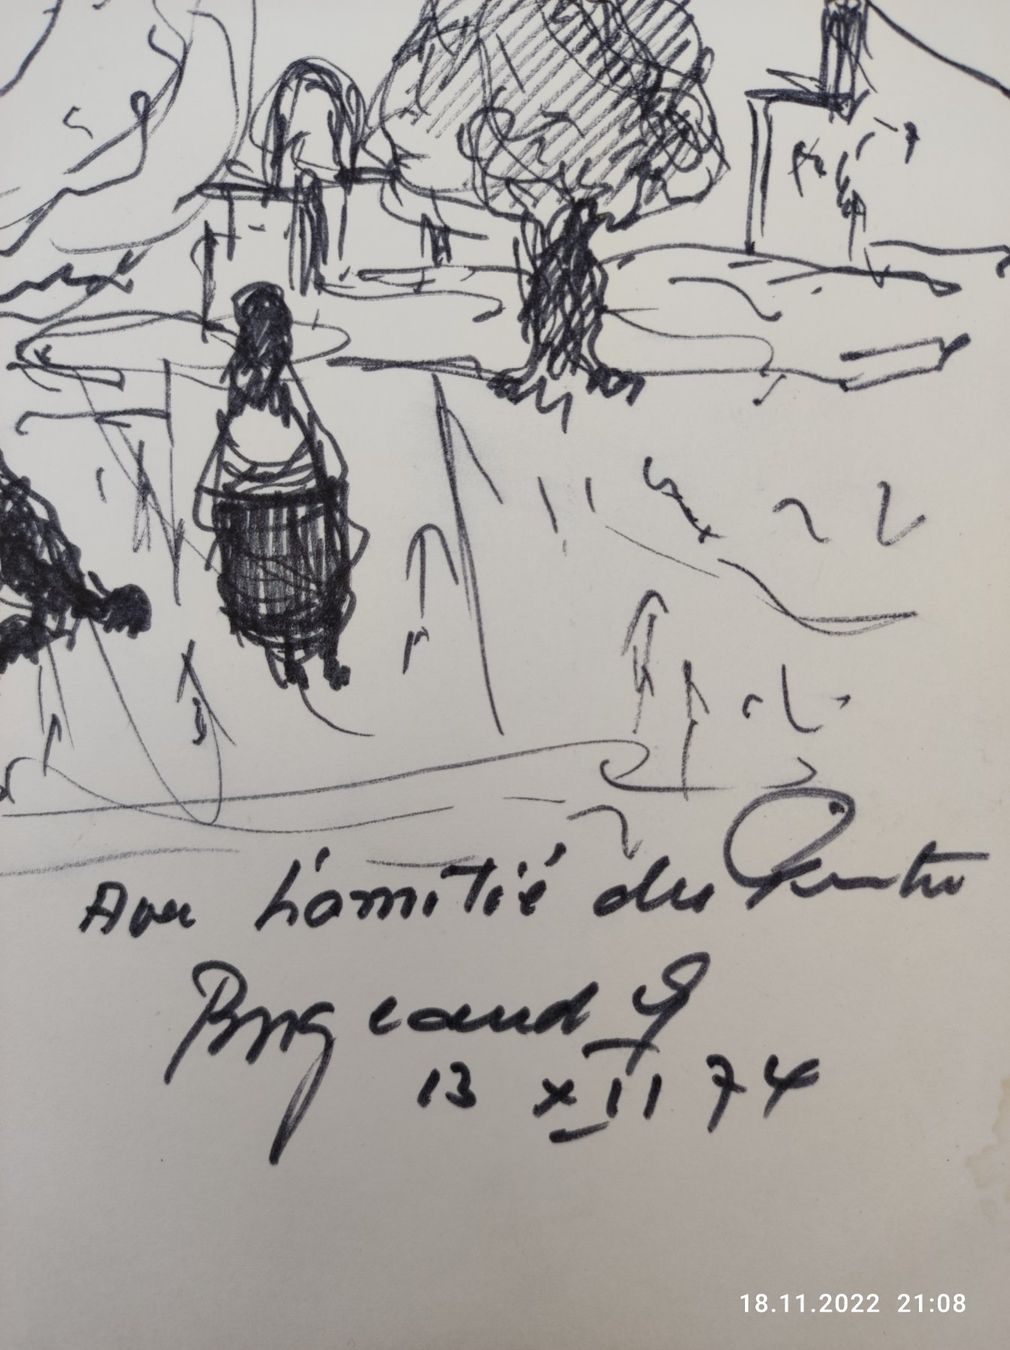 Avec L'amitié du Peintre
13 XII 74
18.11.2022 21:08